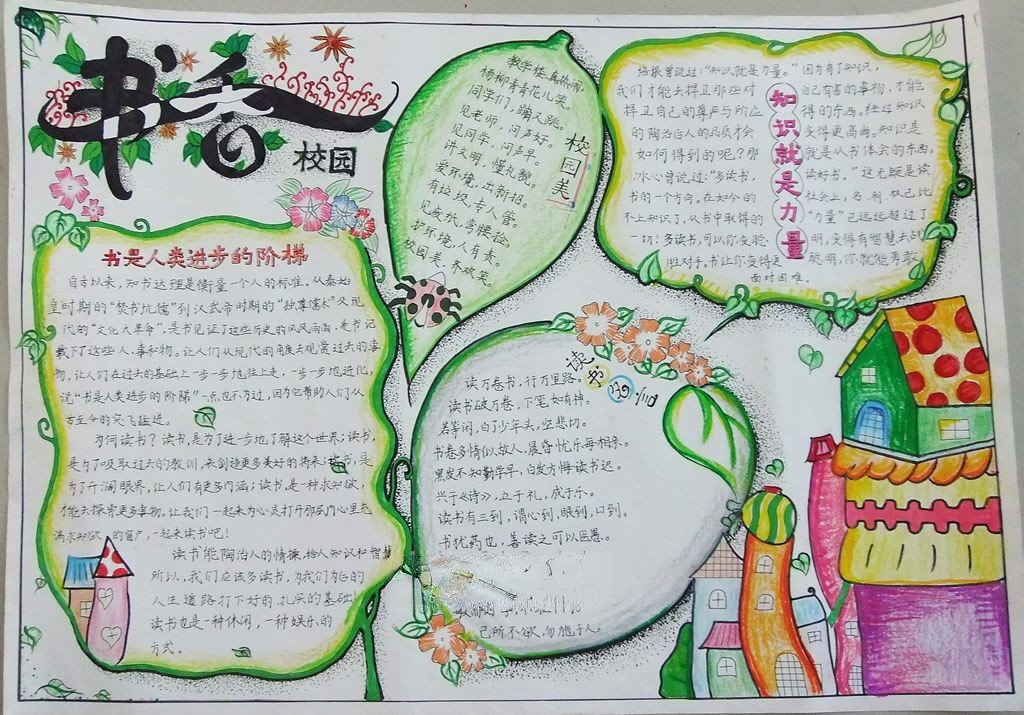 书香
校园
书是人类进步的阶梯
自古以来，知书达理是衡量一个人的标准。从秦始
皇时期的“焚书坑儒”到汉武帝时期的“独尊儒术”又现
代的“文化大革命”，是书见证了这些历史的风风雨雨，是书记
载下了这些人、事和物。让人们从现代的角度去观赏过去的事
物，让人们在过去的基础上一步一步地往上走，一步一步地进化，
说“书是人类进步的阶梯”一点也不为过，因为它帮助人们从
古至今的突飞猛进。
为何读书？读书，是为了进一步地了解这个世界；读书，
是为了吸取过去的教训，来创造更多美好的将来；读书，是
为了开阔眼界，让人们有更多内涵；读书，是一种求知欲，
才能去探索更多事物。让我们一起来为心灵打开那扇内心里充
满求知欲的窗户，一起来读书吧！
读书能陶冶人的情操，给人知识和智慧
所以，我们应该多读书，为我们以后的
人生道路打下好的、扎实的基础！
读书也是一种休闲，一种娱乐的
方式。
校园美
教学楼，真热闹。
杨柳青青花儿笑。
同学们，蹦又跳。
见老师，问声好。
见同学，问声早。
讲文明，懂礼貌。
爱环境，出新招。
有垃圾，专人管。
见废纸，弯腰捡。
护环境，人有责。
校园美，齐欢笑。
读书名言
读万卷书，行万里路。
读书破万卷，下笔如有神。
若等闲，白了少年头，空悲切。
书卷多情似故人，晨昏忧乐每相亲。
黑发不知勤学早，白发方悔读书迟。
兴于《诗》，立于礼，成于乐。
读书有三到，谓心到，眼到，口到。
书犹药也，善读之可以医愚。
己所不欲，勿施于人。
知识就是力量
培根曾说过：“知识就是力量。”因为有了知识，
我们才能去捍卫那些对自己有害的事物，才能
捍卫自己的尊严与所应得的东西。经过知识
的陶冶后人的品质才会变得更高尚。知识是
如何得到的呢？那就是从书体会的东西。
冰心曾说过：“多读书，读好书。”这无疑是读
书的一个方向。在如今的社会上，名、利、权已比
不上知识了，从书中取得的“力量”已远远超过了
一切！多读书，可以你变聪明，变得有智慧去战
胜对手。书让你变得更聪明，你就能勇敢
面对困难。